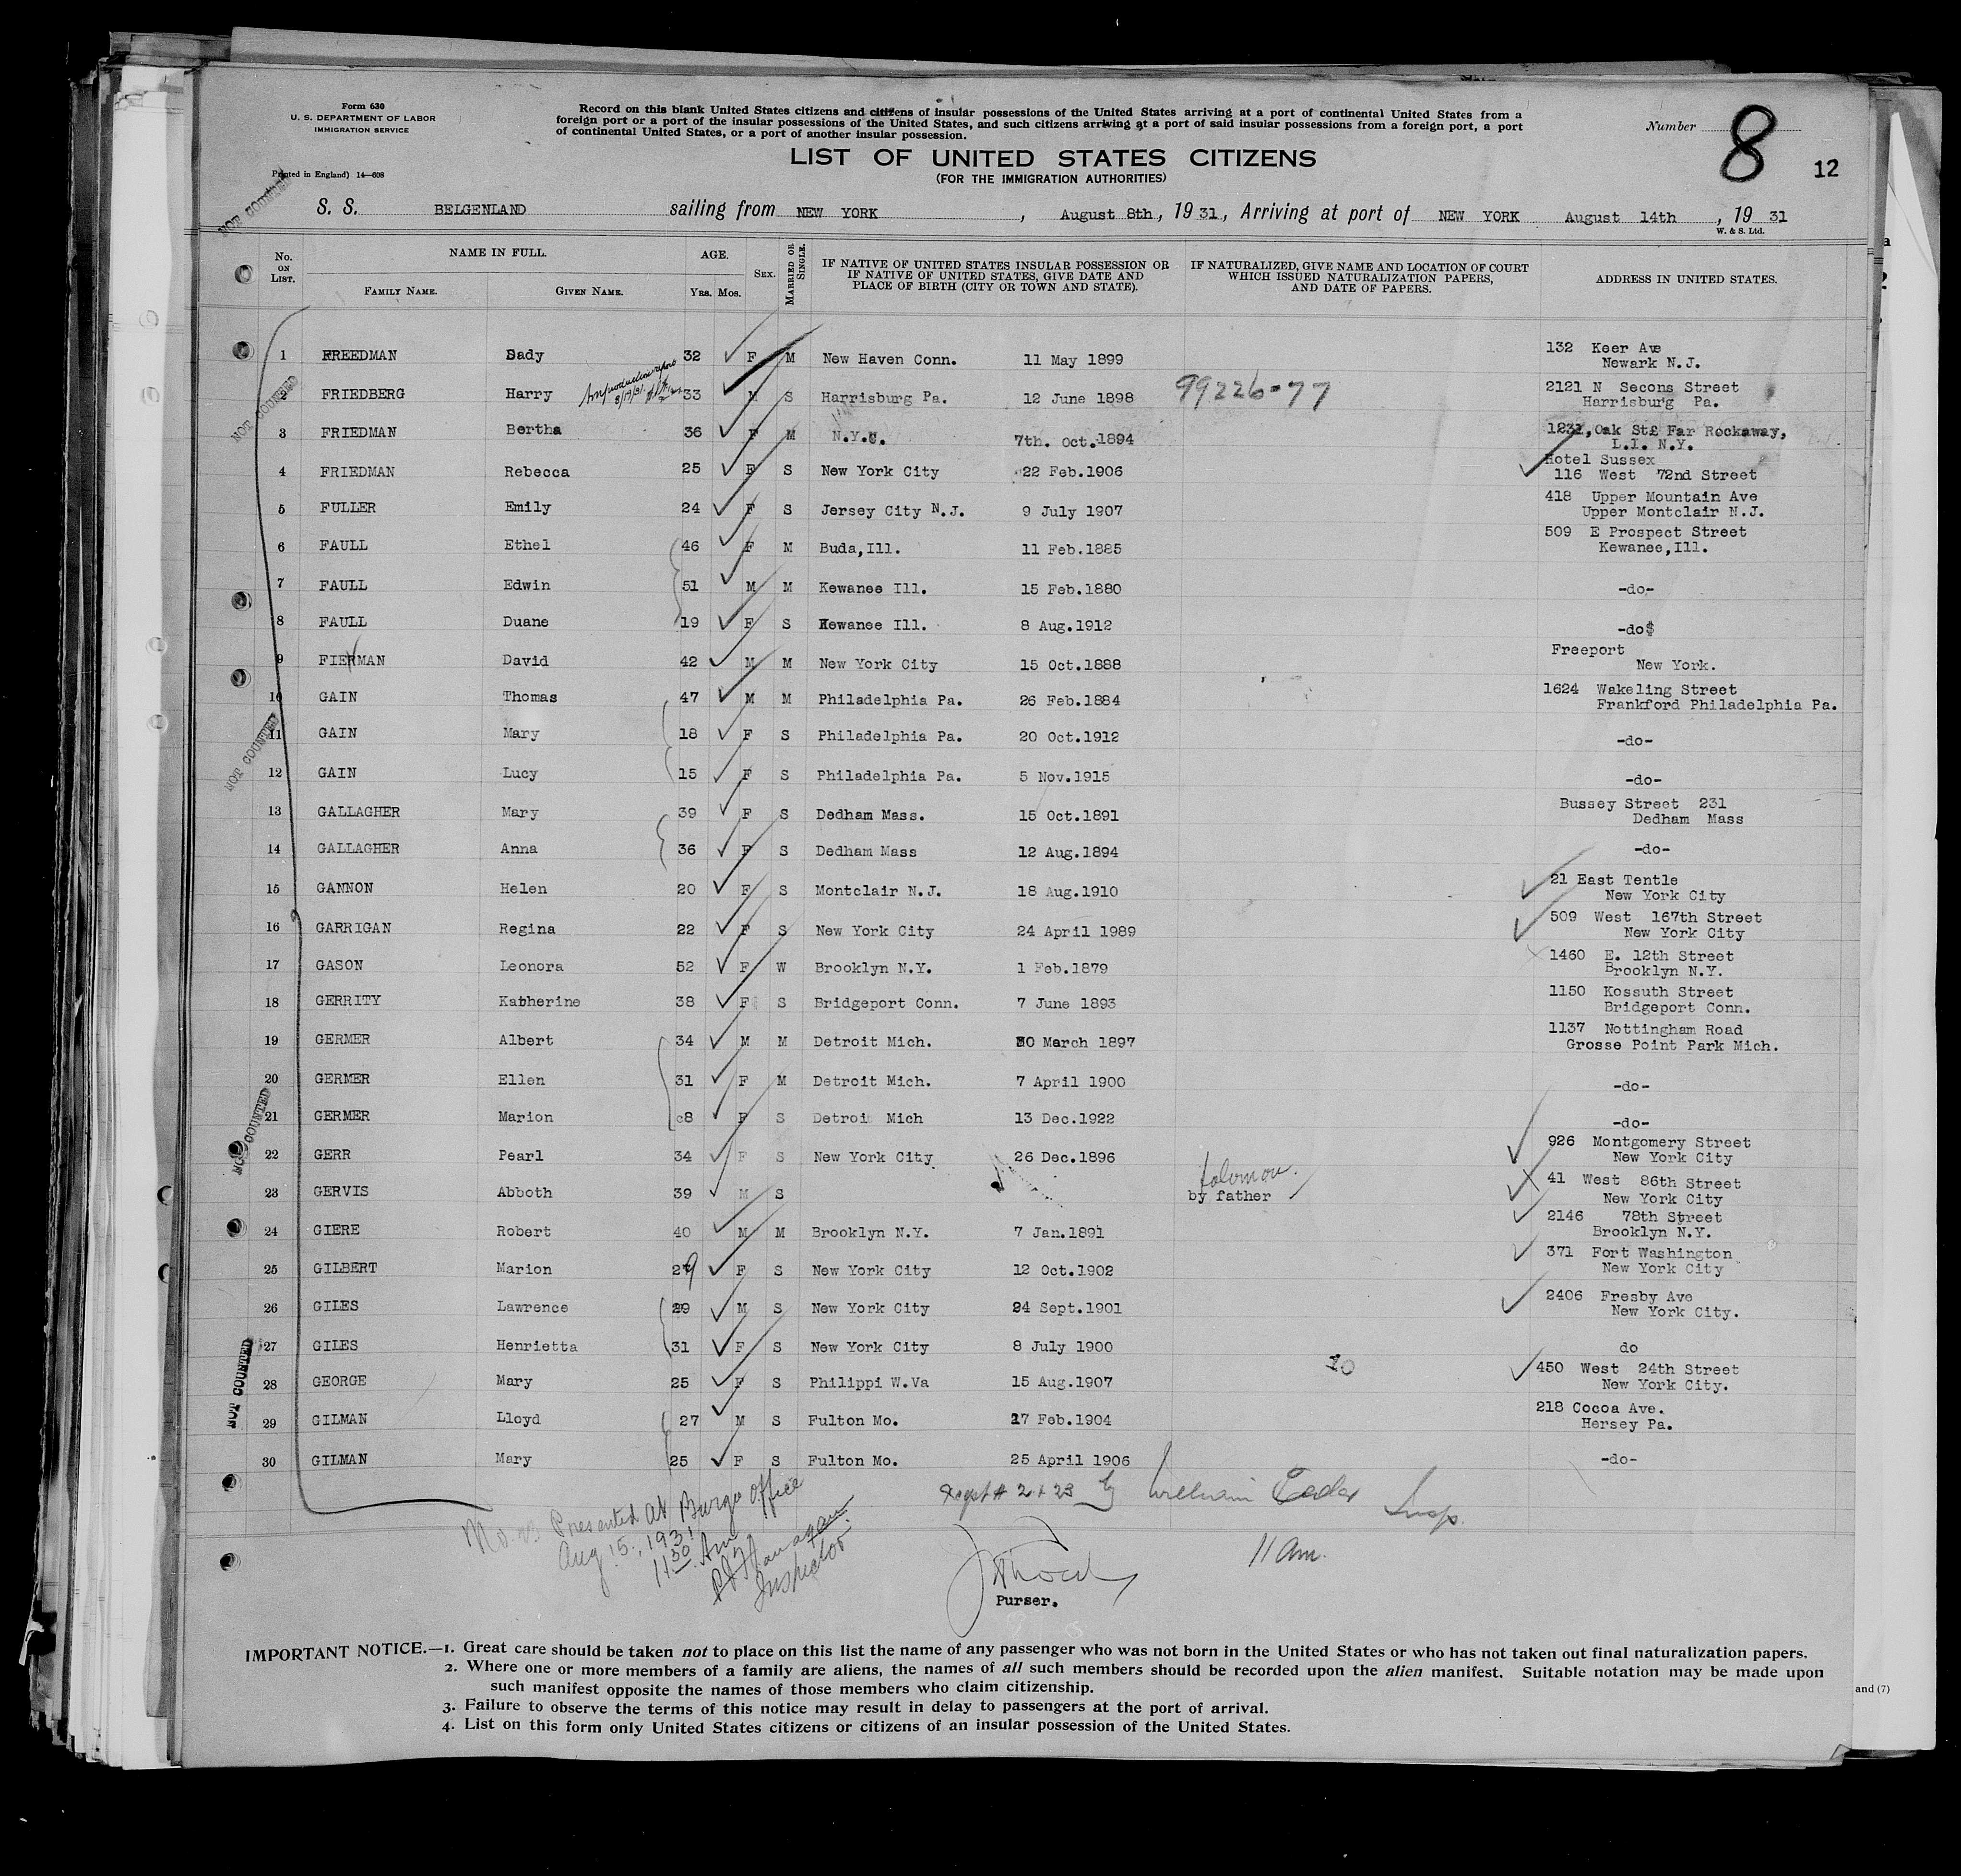 Form 630
U. S. DEPARTMENT OF LABOR
IMMIGRATION SERVICE
Printed in England) 14—608
Record on this blank United States citizens and citizens of insular possessions of the United States arriving at a port of continental United States from a
foreign port or a port of the insular possessions of the United States, and such citizens arriving at a port of said insular possessions from a foreign port, a port
of continental United States, or a port of another insular possession.
Number 8 12
LIST OF UNITED STATES CITIZENS
(FOR THE IMMIGRATION AUTHORITIES)
S. S. BELGENLAND sailing from NEW YORK, August 8th, 1931, Arriving at port of NEW YORK August 14th, 1931
W. & S. Ltd.
No. ON LIST. NAME IN FULL. FAMILY NAME. GIVEN NAME. AGE. Yrs. Mos. SEX. MARRIED OR SINGLE. IF NATIVE OF UNITED STATES INSULAR POSSESSION OR IF NATIVE OF UNITED STATES, GIVE DATE AND PLACE OF BIRTH (CITY OR TOWN AND STATE). IF NATURALIZED, GIVE NAME AND LOCATION OF COURT WHICH ISSUED NATURALIZATION PAPERS, AND DATE OF PAPERS. ADDRESS IN UNITED STATES.
1 FREEDMAN Sady 32 F M New Haven Conn. 11 May 1899 132 Keer Ave Newark N.J.
2 FRIEDBERG Harry 33 M S Harrisburg Pa. 12 June 1898 99226-77 2121 N Secons Street Harrisburg Pa.
3 FRIEDMAN Bertha 36 F M N.Y.C. 7th. Oct.1894 1231,Oak St£ Far Rockaway, L.I. N.Y.
4 FRIEDMAN Rebecca 25 F S New York City 22 Feb.1906 Hotel Sussex 116 West 72nd Street
5 FULLER Emily 24 F S Jersey City N.J. 9 July 1907 418 Upper Mountain Ave Upper Montclair N.J.
6 FAULL Ethel 46 F M Buda,Ill. 11 Feb.1885 509 E Prospect Street Kewanee,Ill.
7 FAULL Edwin 51 M M Kewanee Ill. 15 Feb.1880 -do-
8 FAULL Duane 19 F S Kewanee Ill. 8 Aug.1912 -do$
9 FIERMAN David 42 M M New York City 15 Oct.1888 Freeport New York.
10 GAIN Thomas 47 M M Philadelphia Pa. 26 Feb.1884 1624 Wakeling Street Frankford Philadelphia Pa.
11 GAIN Mary 18 F S Philadelphia Pa. 20 Oct.1912 -do-
12 GAIN Lucy 15 F S Philadelphia Pa. 5 Nov.1915 -do-
13 GALLAGHER Mary 39 F S Dedham Mass. 15 Oct.1891 Bussey Street 231 Dedham Mass
14 GALLAGHER Anna 36 F S Dedham Mass 12 Aug.1894 -do-
15 GANNON Helen 20 F S Montclair N.J. 18 Aug.1910 21 East Tentle New York City
16 GARRIGAN Regina 22 F S New York City 24 April 1989 509 West 167th Street New York City
17 GASON Leonora 52 F W Brooklyn N.Y. 1 Feb.1879 1460 E. 12th Street Brooklyn N.Y.
18 GERRITY Katherine 38 F S Bridgeport Conn. 7 June 1893 1150 Kossuth Street Bridgeport Conn.
19 GERMER Albert 34 M M Detroit Mich. 30 March 1897 1137 Nottingham Road Grosse Point Park Mich.
20 GERMER Ellen 31 F M Detroit Mich. 7 April 1900 -do-
21 GERMER Marion 8 F S Detroit Mich 13 Dec.1922 -do-
22 GERR Pearl 34 F S New York City 26 Dec.1896 926 Montgomery Street New York City
23 GERVIS Abboth 39 M S Solomon. by father 41 West 86th Street New York City
24 GIERE Robert 40 M M Brooklyn N.Y. 7 Jan.1891 2146 78th Street Brooklyn N.Y.
25 GILBERT Marion 29 F S New York City 12 Oct.1902 371 Fort Washington New York City
26 GILES Lawrence 29 M S New York City 24 Sept.1901 2406 Fresby Ave New York City.
27 GILES Henrietta 31 F S New York City 8 July 1900 do
28 GEORGE Mary 25 F S Philippi W.Va 15 Aug.1907 10 450 West 24th Street New York City.
29 GILMAN Lloyd 27 M S Fulton Mo. 27 Feb.1904 218 Cocoa Ave. Hersey Pa.
30 GILMAN Mary 25 F S Fulton Mo. 25 April 1906 -do-
NOT COUNTED
NOT COUNTED
NOT COUNTED
NOT COUNTED
NOT COUNTED
Except # 2 + 23 by William Insp.
11 am.
No. 23 Presented At Barge Office
Aug 15, 1931
11 30 Am
Inspector
Purser.
IMPORTANT NOTICE.—1. Great care should be taken not to place on this list the name of any passenger who was not born in the United States or who has not taken out final naturalization papers.
2. Where one or more members of a family are aliens, the names of all such members should be recorded upon the alien manifest. Suitable notation may be made upon
such manifest opposite the names of those members who claim citizenship.
3. Failure to observe the terms of this notice may result in delay to passengers at the port of arrival.
4. List on this form only United States citizens or citizens of an insular possession of the United States.
and (7)